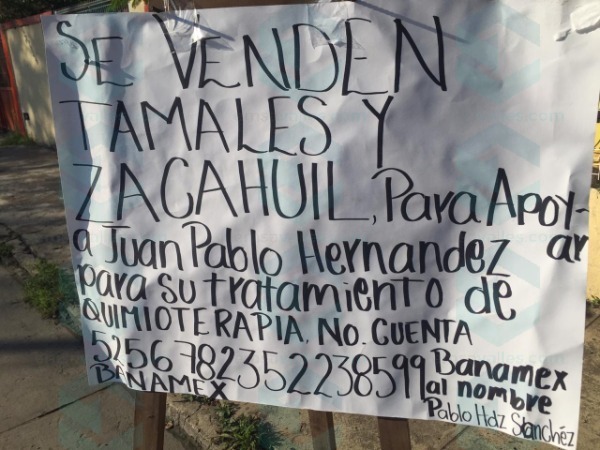 SE VENDEN
TAMALES Y
ZACAHUIL, Para Apoy-
a Juan Pablo Hernandez ar
para su tratamiento de
QUIMIOTERAPIA. No. CUENTA
5256782352238599 Banamex
BANAMEX al nombre
Pablo Hdz Slanchéz